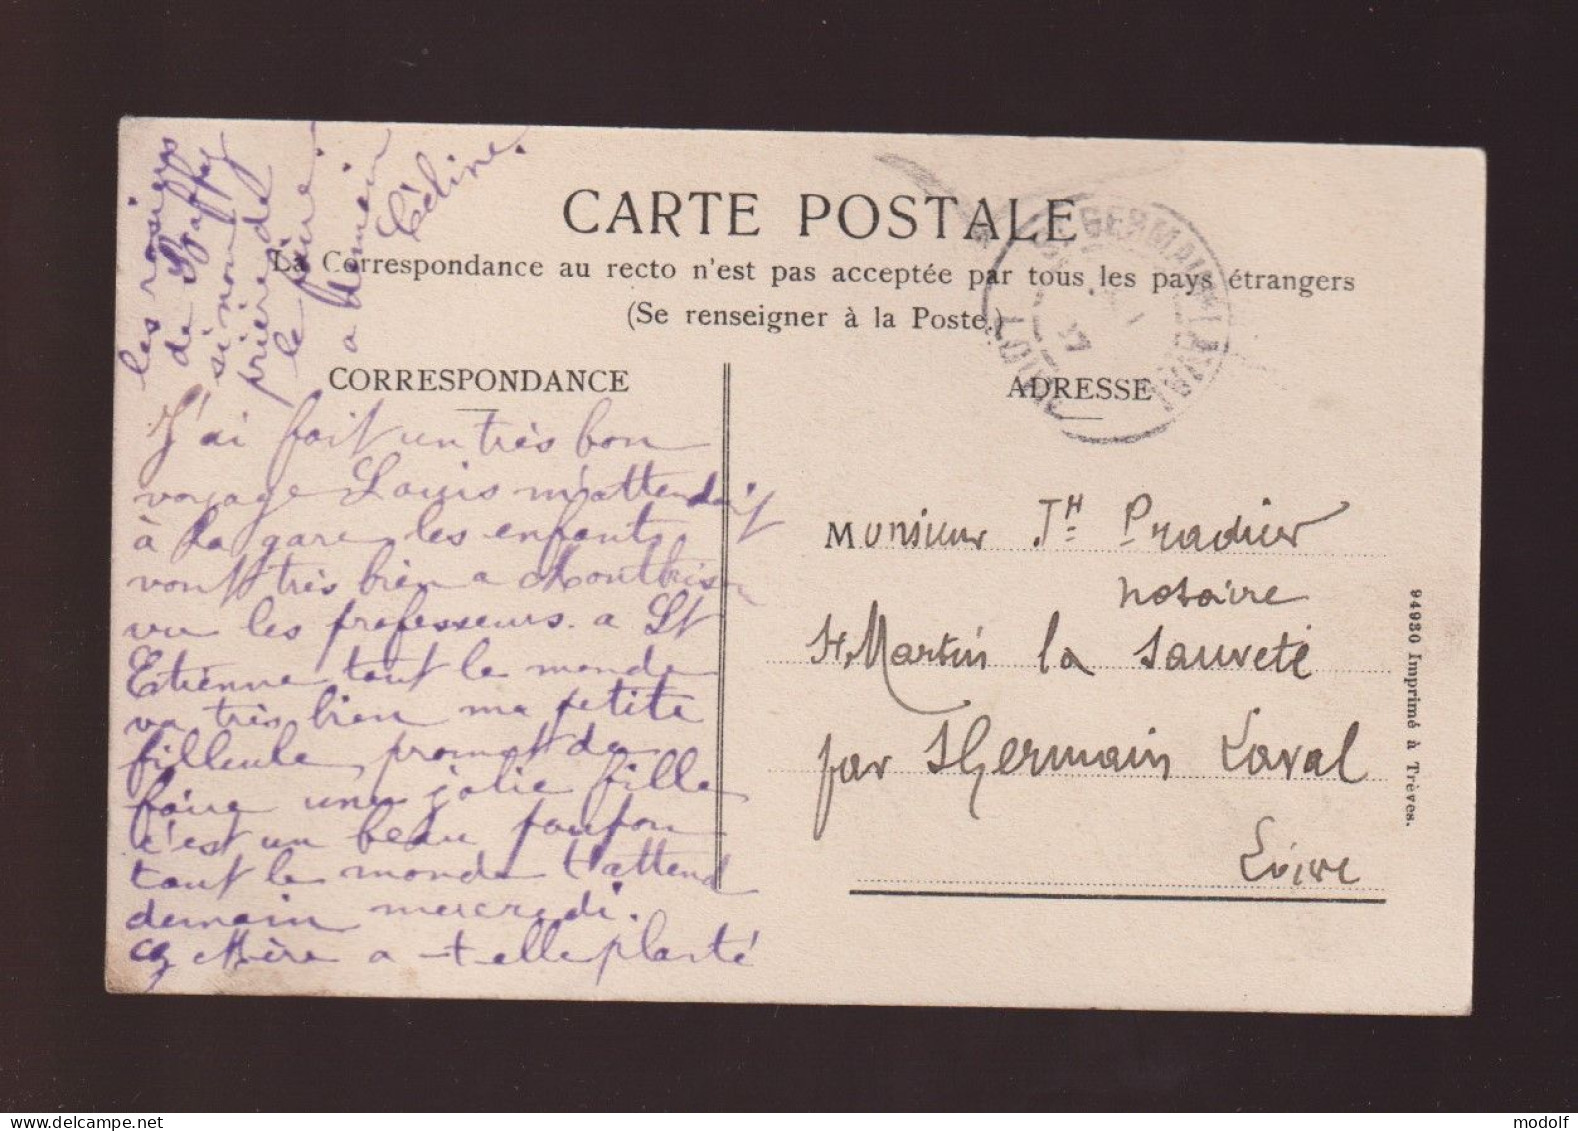 CARTE POSTALE
La Correspondance au recto n'est pas acceptée par tous les pays étrangers
(Se renseigner à la Poste.)
CORRESPONDANCE
J'ai fait un très bon
voyage Louis m'attendait
à la gare, les enfants
vont très bien a Montbrison
vu les professeurs. a St
Etienne tout le monde
va très bien ma petite
filleule, promet de
faire une jolie fille
c'est un beau poupon
tout le monde t'attend
demain mercredi.
Mère a-t elle planté
les rosiers
de
sinon
prière de
le faire.
a demain
Céline.
ADRESSE
ST GERMAIN LAVAL
LOIRE
Monsieur Jh Pradier
notaire
St Martin la Sauveté
par St Germain Laval
Loire
94930 Imprimé à Trèves.
www.delcampe.net
modolf